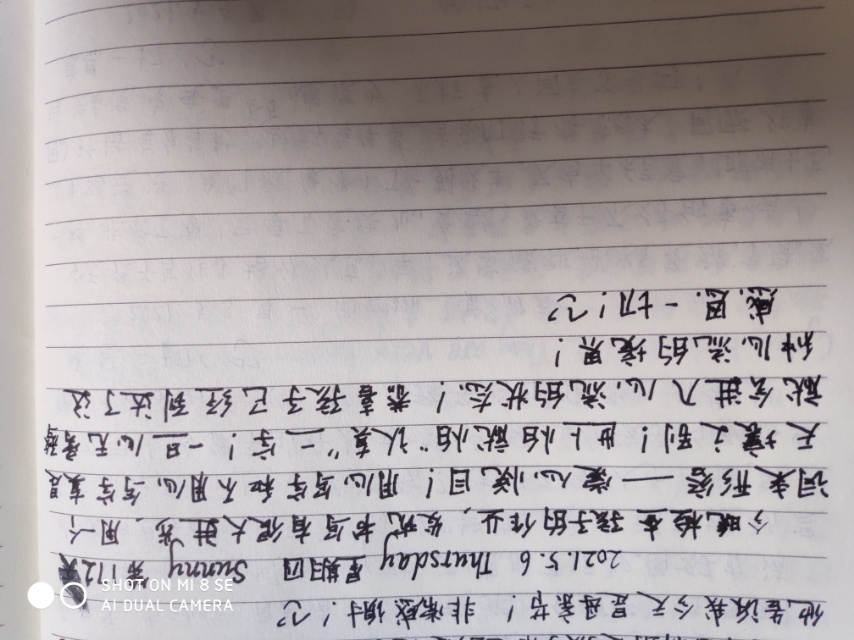 他告诉我今天是母亲节！非常感谢！
2021.5.6 Thursday 星期四 Sunny 第112天
今晚检查孩子的作业，发现书写有很大进步，用一个
词来形容——赏心悦目！用心写字和不用心写字真是
天壤之别！世上怕就怕“认真”二字！一旦心无旁骛
就会进入心流的状态！恭喜孩子已经到达了这
种心流的境界！
感恩一切！
SHOT ON MI 8 SE
AI DUAL CAMERA